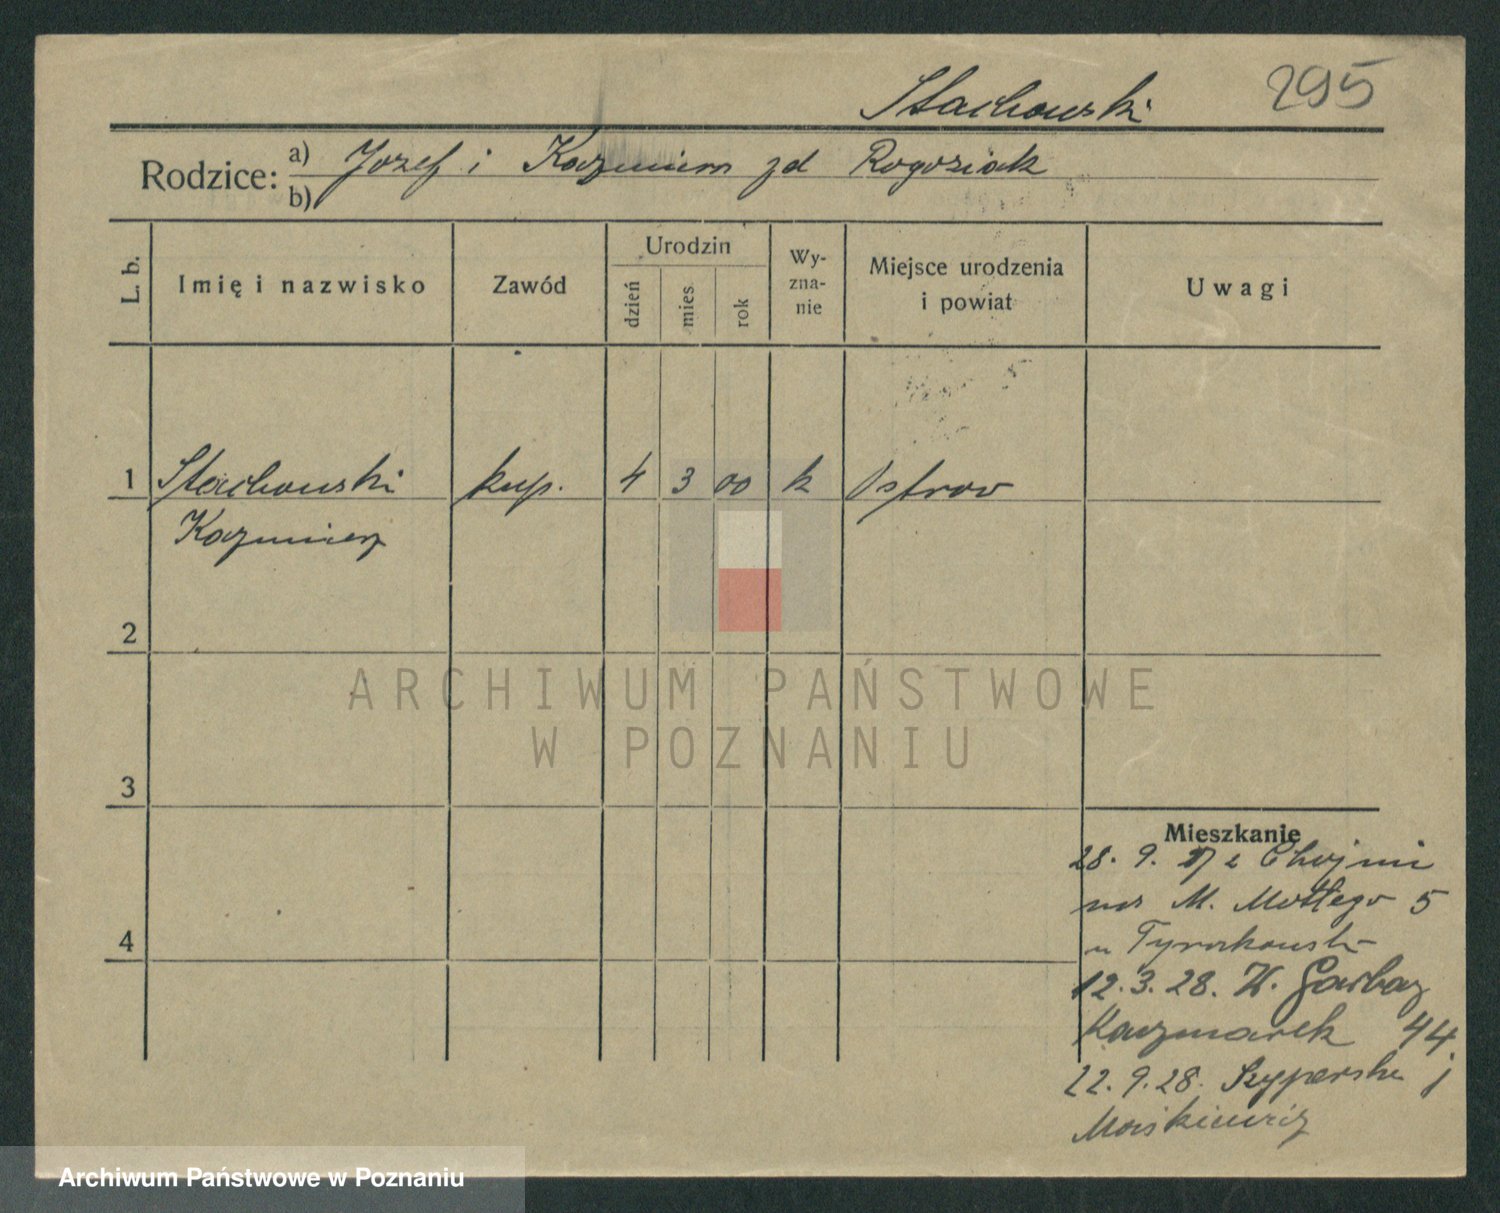 Stachowski 295
Rodzice: a) Jozef i Kazmiera zd Rogoziak
b)
L. b. Imię i nazwisko Zawód Urodzin dzień mies rok Wy-zna-nie Miejsce urodzenia i powiat Uwagi
1 Stachowski kup. 4 3 00 k Ostrow
Kazmierz
2
ARCHIWUM PAŃSTWOWE
W POZNANIU
3
Mieszkanie
28. 9. 27 z
M. Mottego 5
u
4
12. 3. 28. W. Garbary
Kaczmarek 44
22. 9. 28. Szyperska
Archiwum Państwowe w Poznaniu